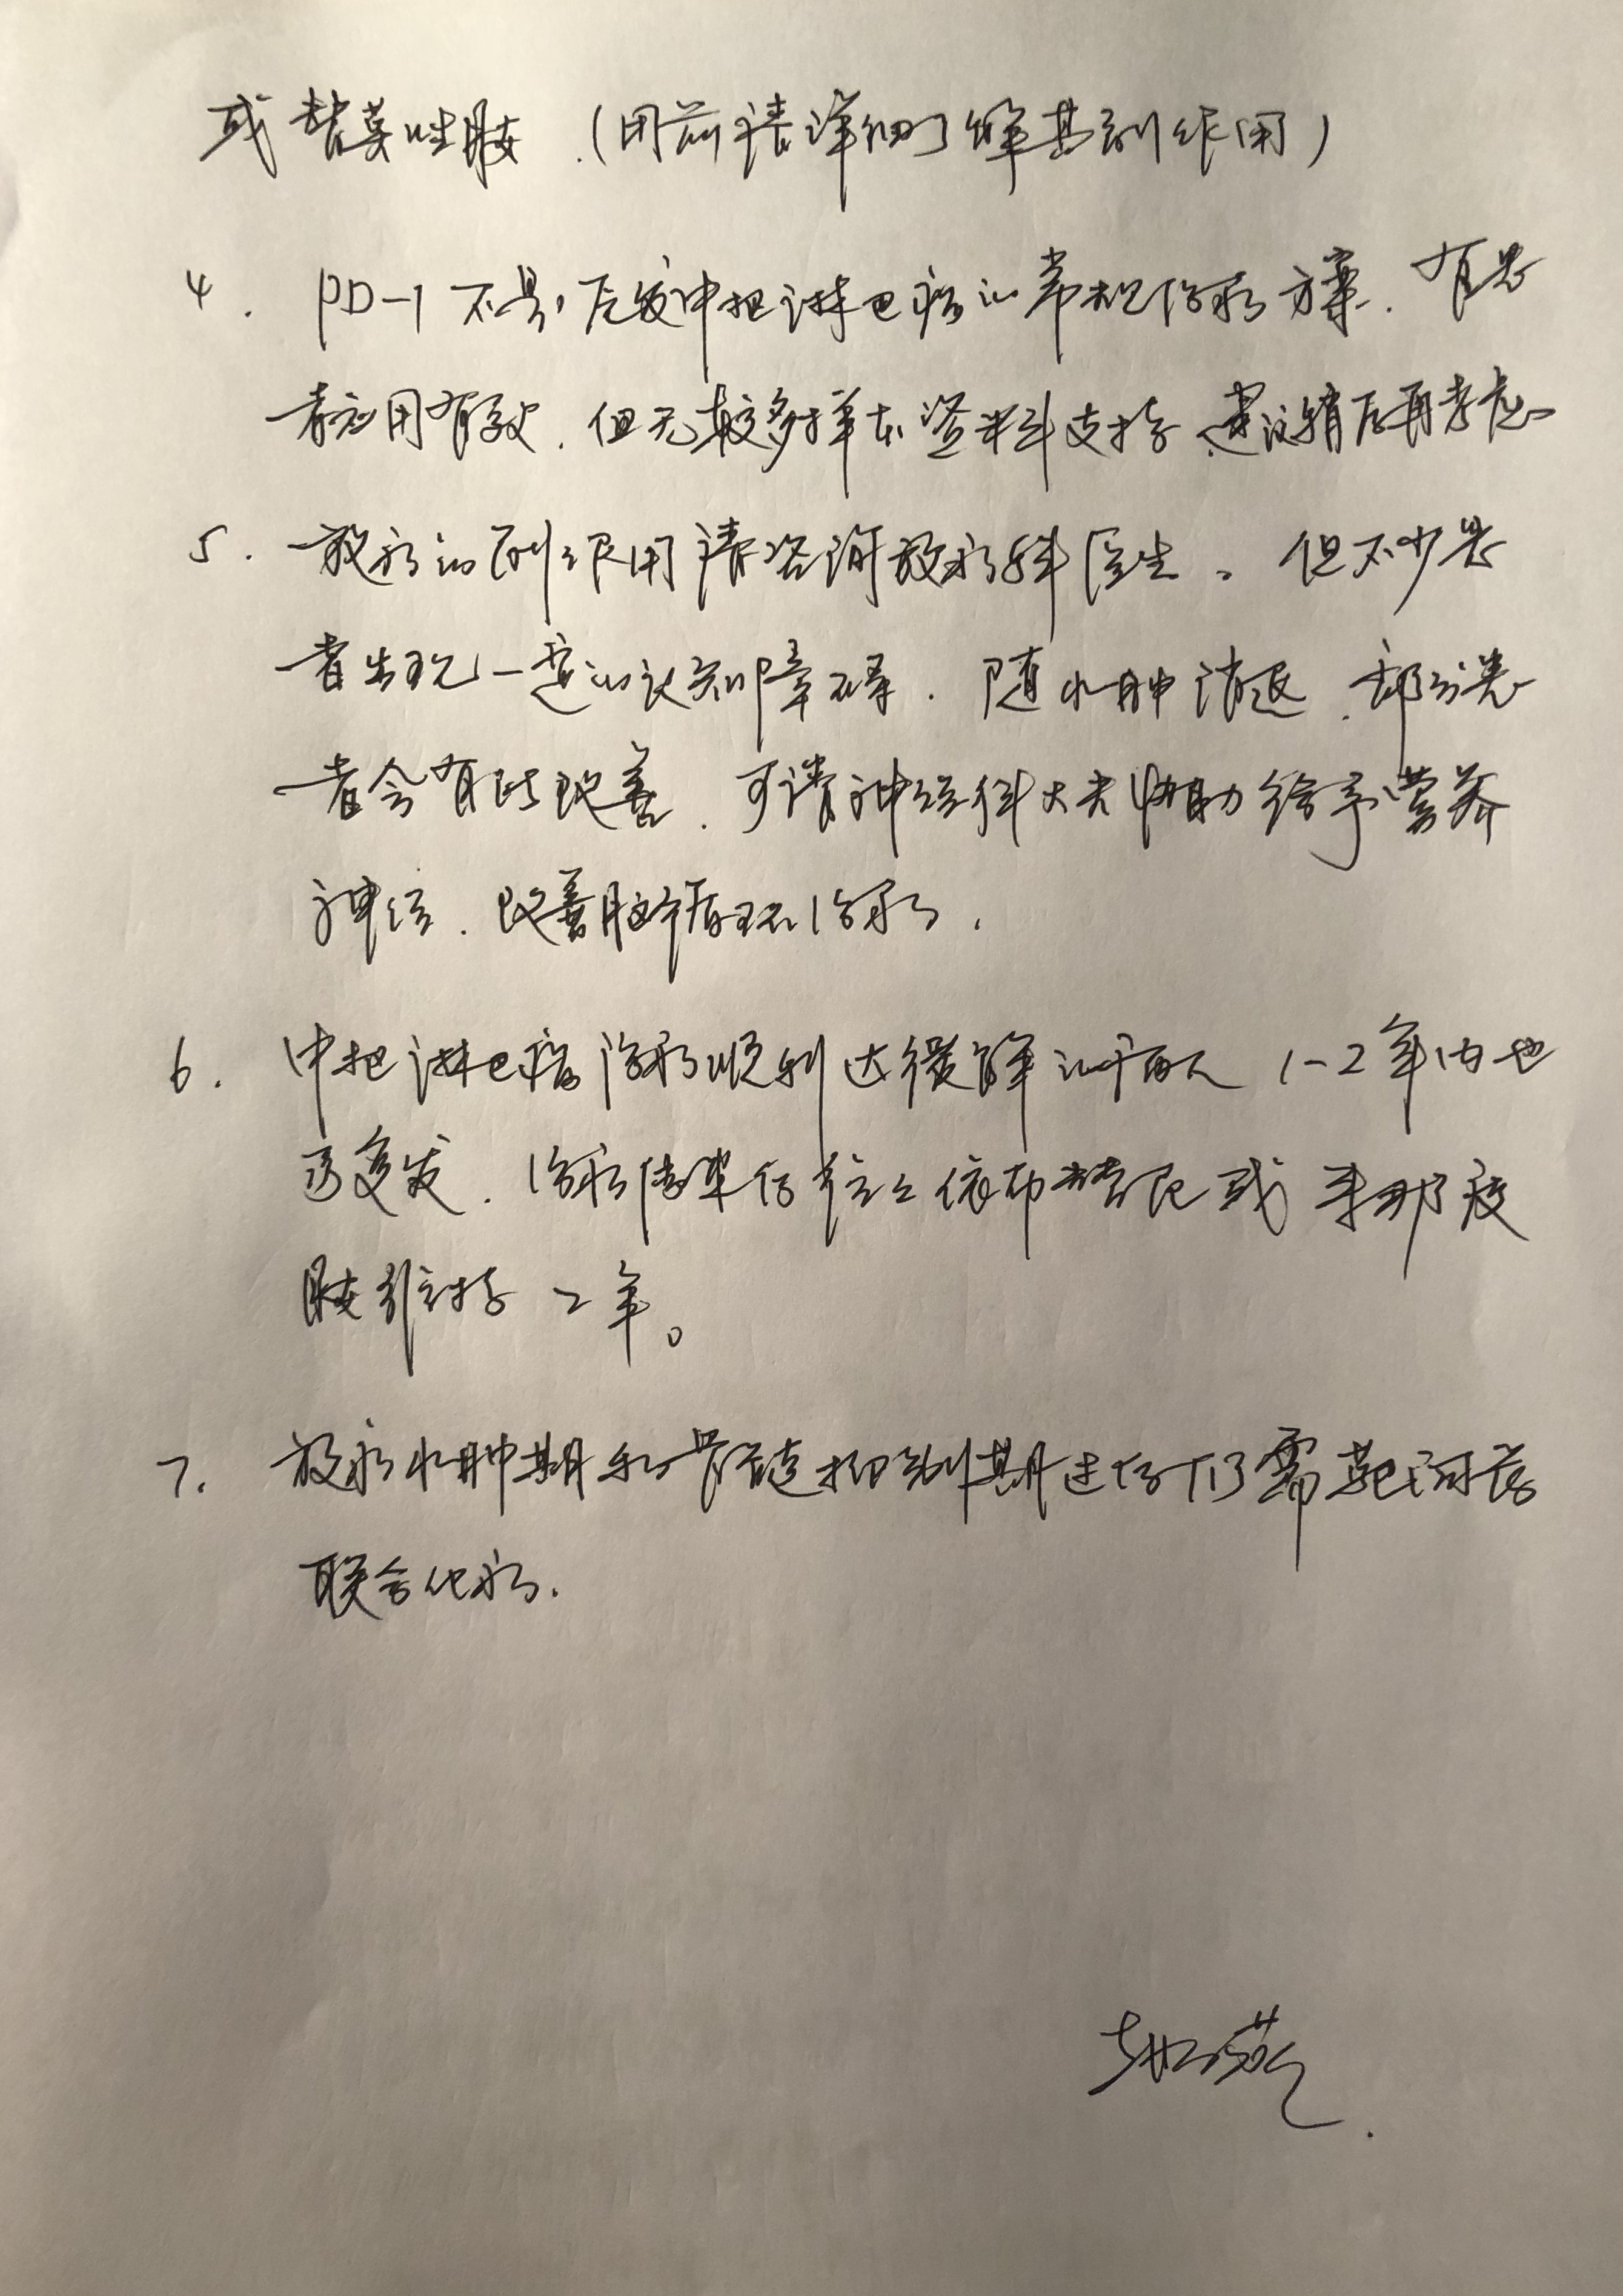 或替莫唑胺.(用前请详细了解其副作用)
4. PD-1不是复发中枢淋巴瘤的常规治疗方案.有患
者应用有效.但无较多样本资料支持.建议稍后再考虑
5. 放疗的副作用请咨询放疗科医生。但不少患
者出现一定的认知障碍.随水肿消退.部分患
者会有所改善.可请神经科大夫协助给予营养
神经.改善脑循环治疗.
6. 中枢淋巴瘤治疗顺利达缓解的病人1-2年内也
易复发.治疗结束后往往依布替尼或来那度
胺维持2年。
7. 放疗水肿期和骨髓抑制期过后仍需靶向药
联合化疗.